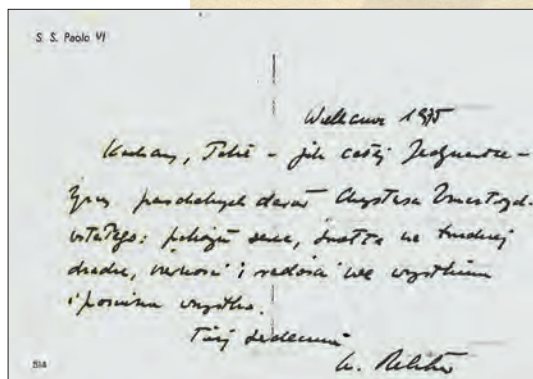 S. S. Paolo VI
Wielkanoc 1975
Kochany, Tobie - jak całej Jedynastce -
życzę paschalnych darów Chrystusa Zmartwych-
wstałego: pokoju serca, światła na trudnej
drodze, wierności i radości we wszystkim
i pomimo wszystko.
Twój serdecznie
514